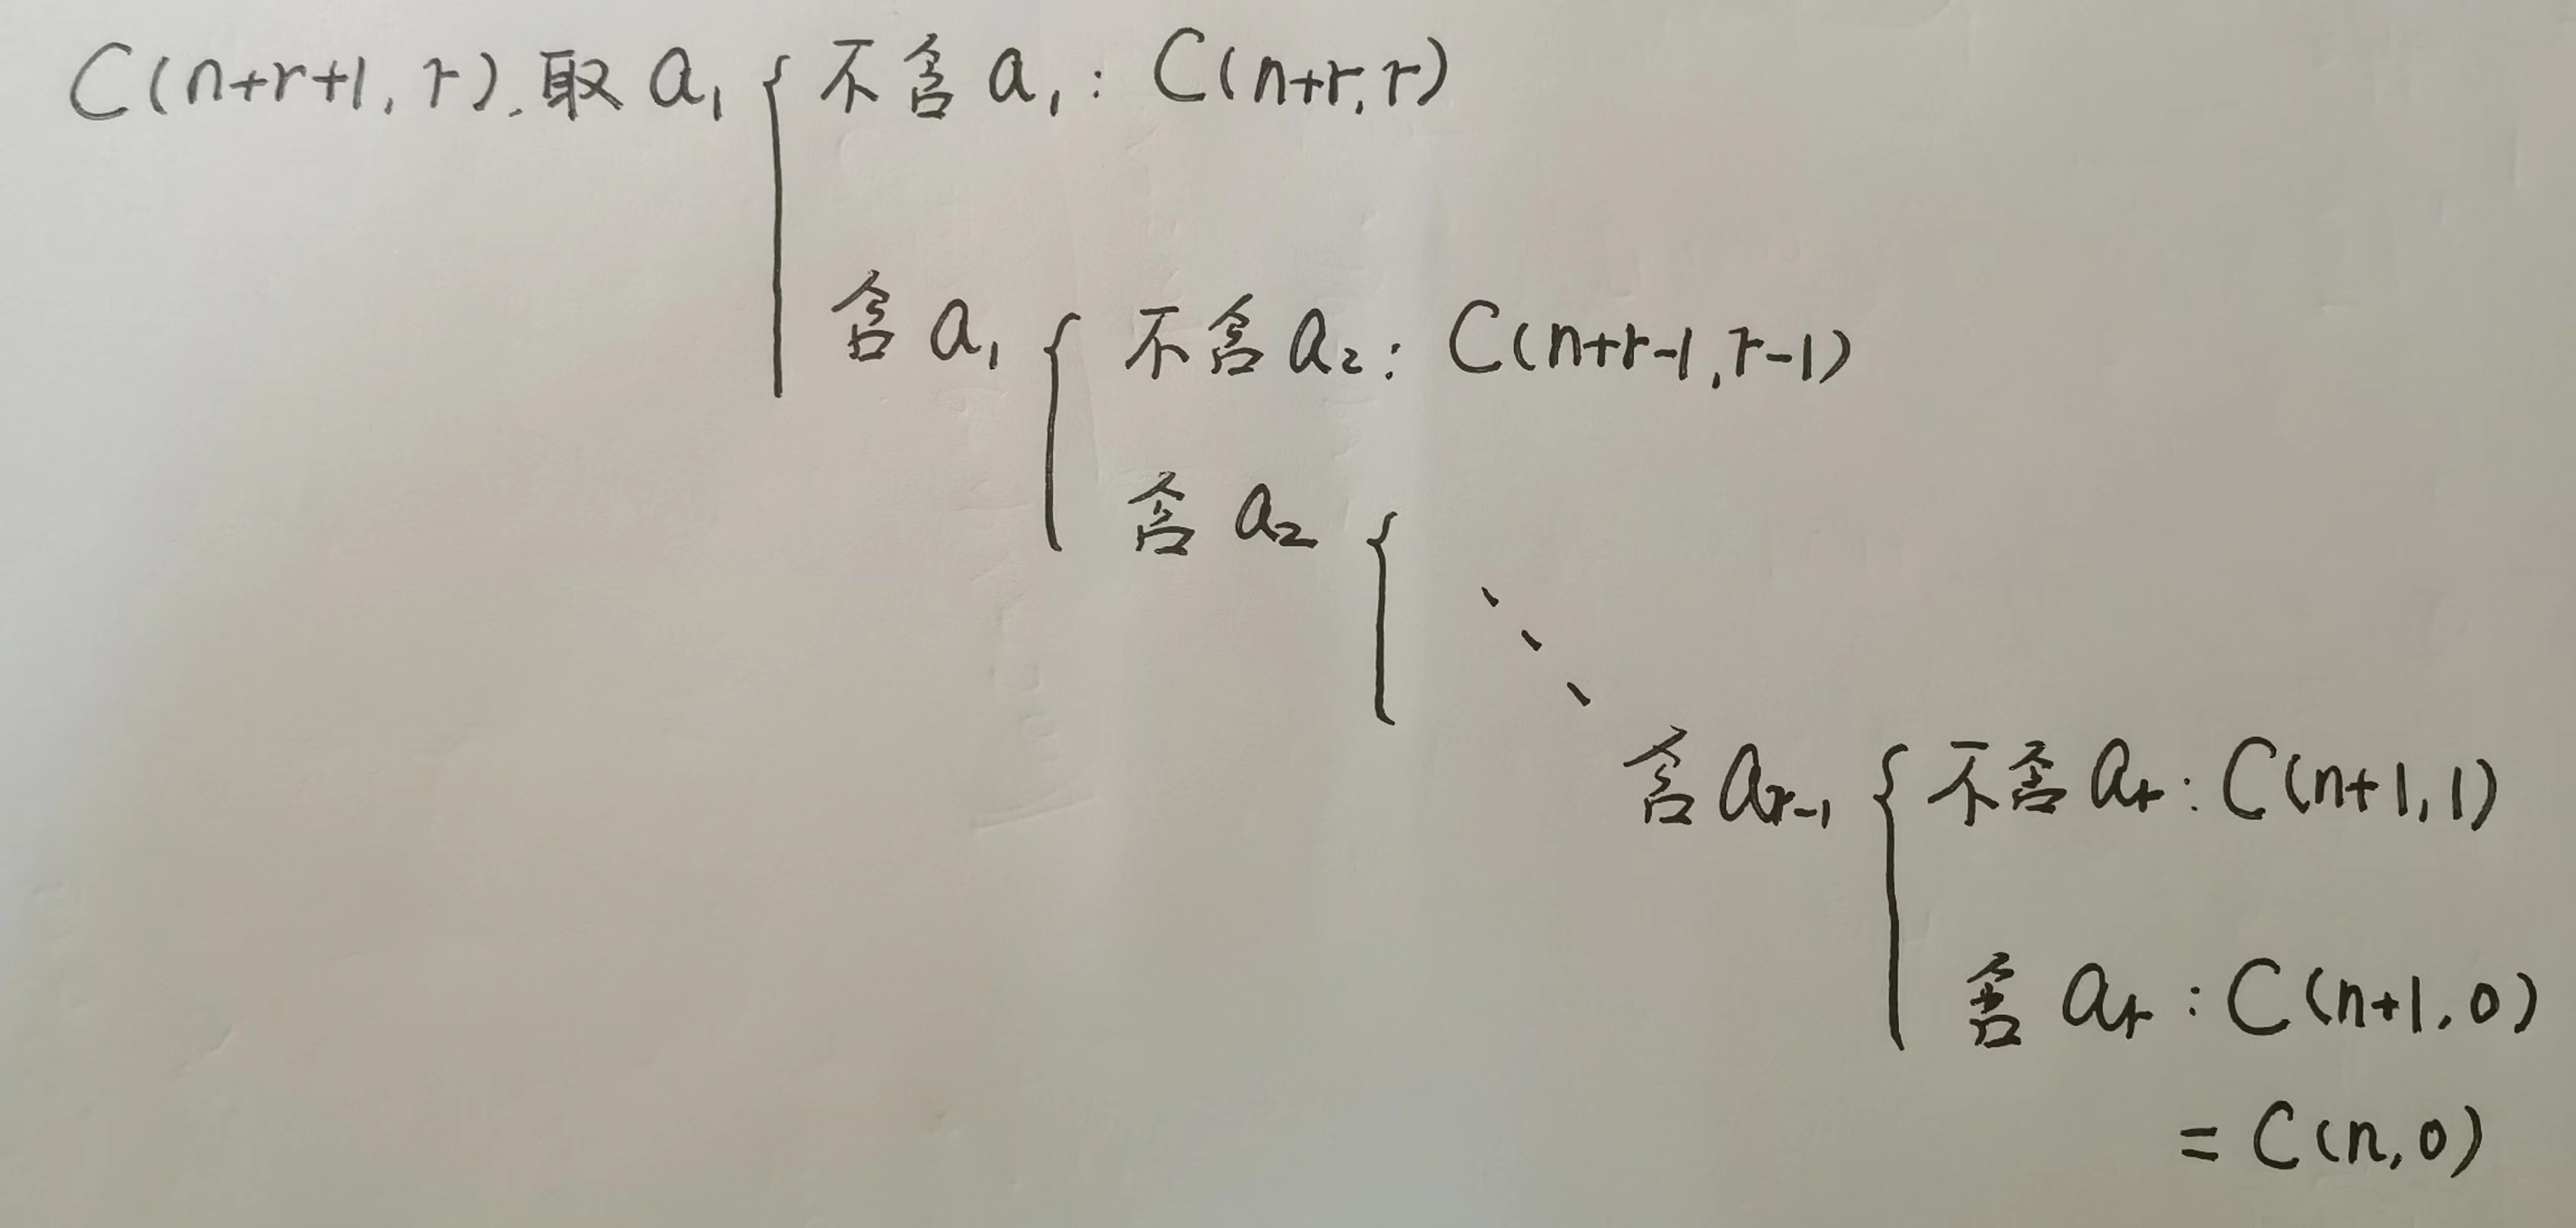 C(n+r+1, r). 取 a₁ { 不含 a₁ : C(n+r, r)
含 a₁ { 不含 a₂ : C(n+r-1, r-1)
含 a₂ {
含 aᵣ₋₁ { 不含 aᵣ : C(n+1, 1)
含 aᵣ : C(n+1, 0)
= C(n, 0)